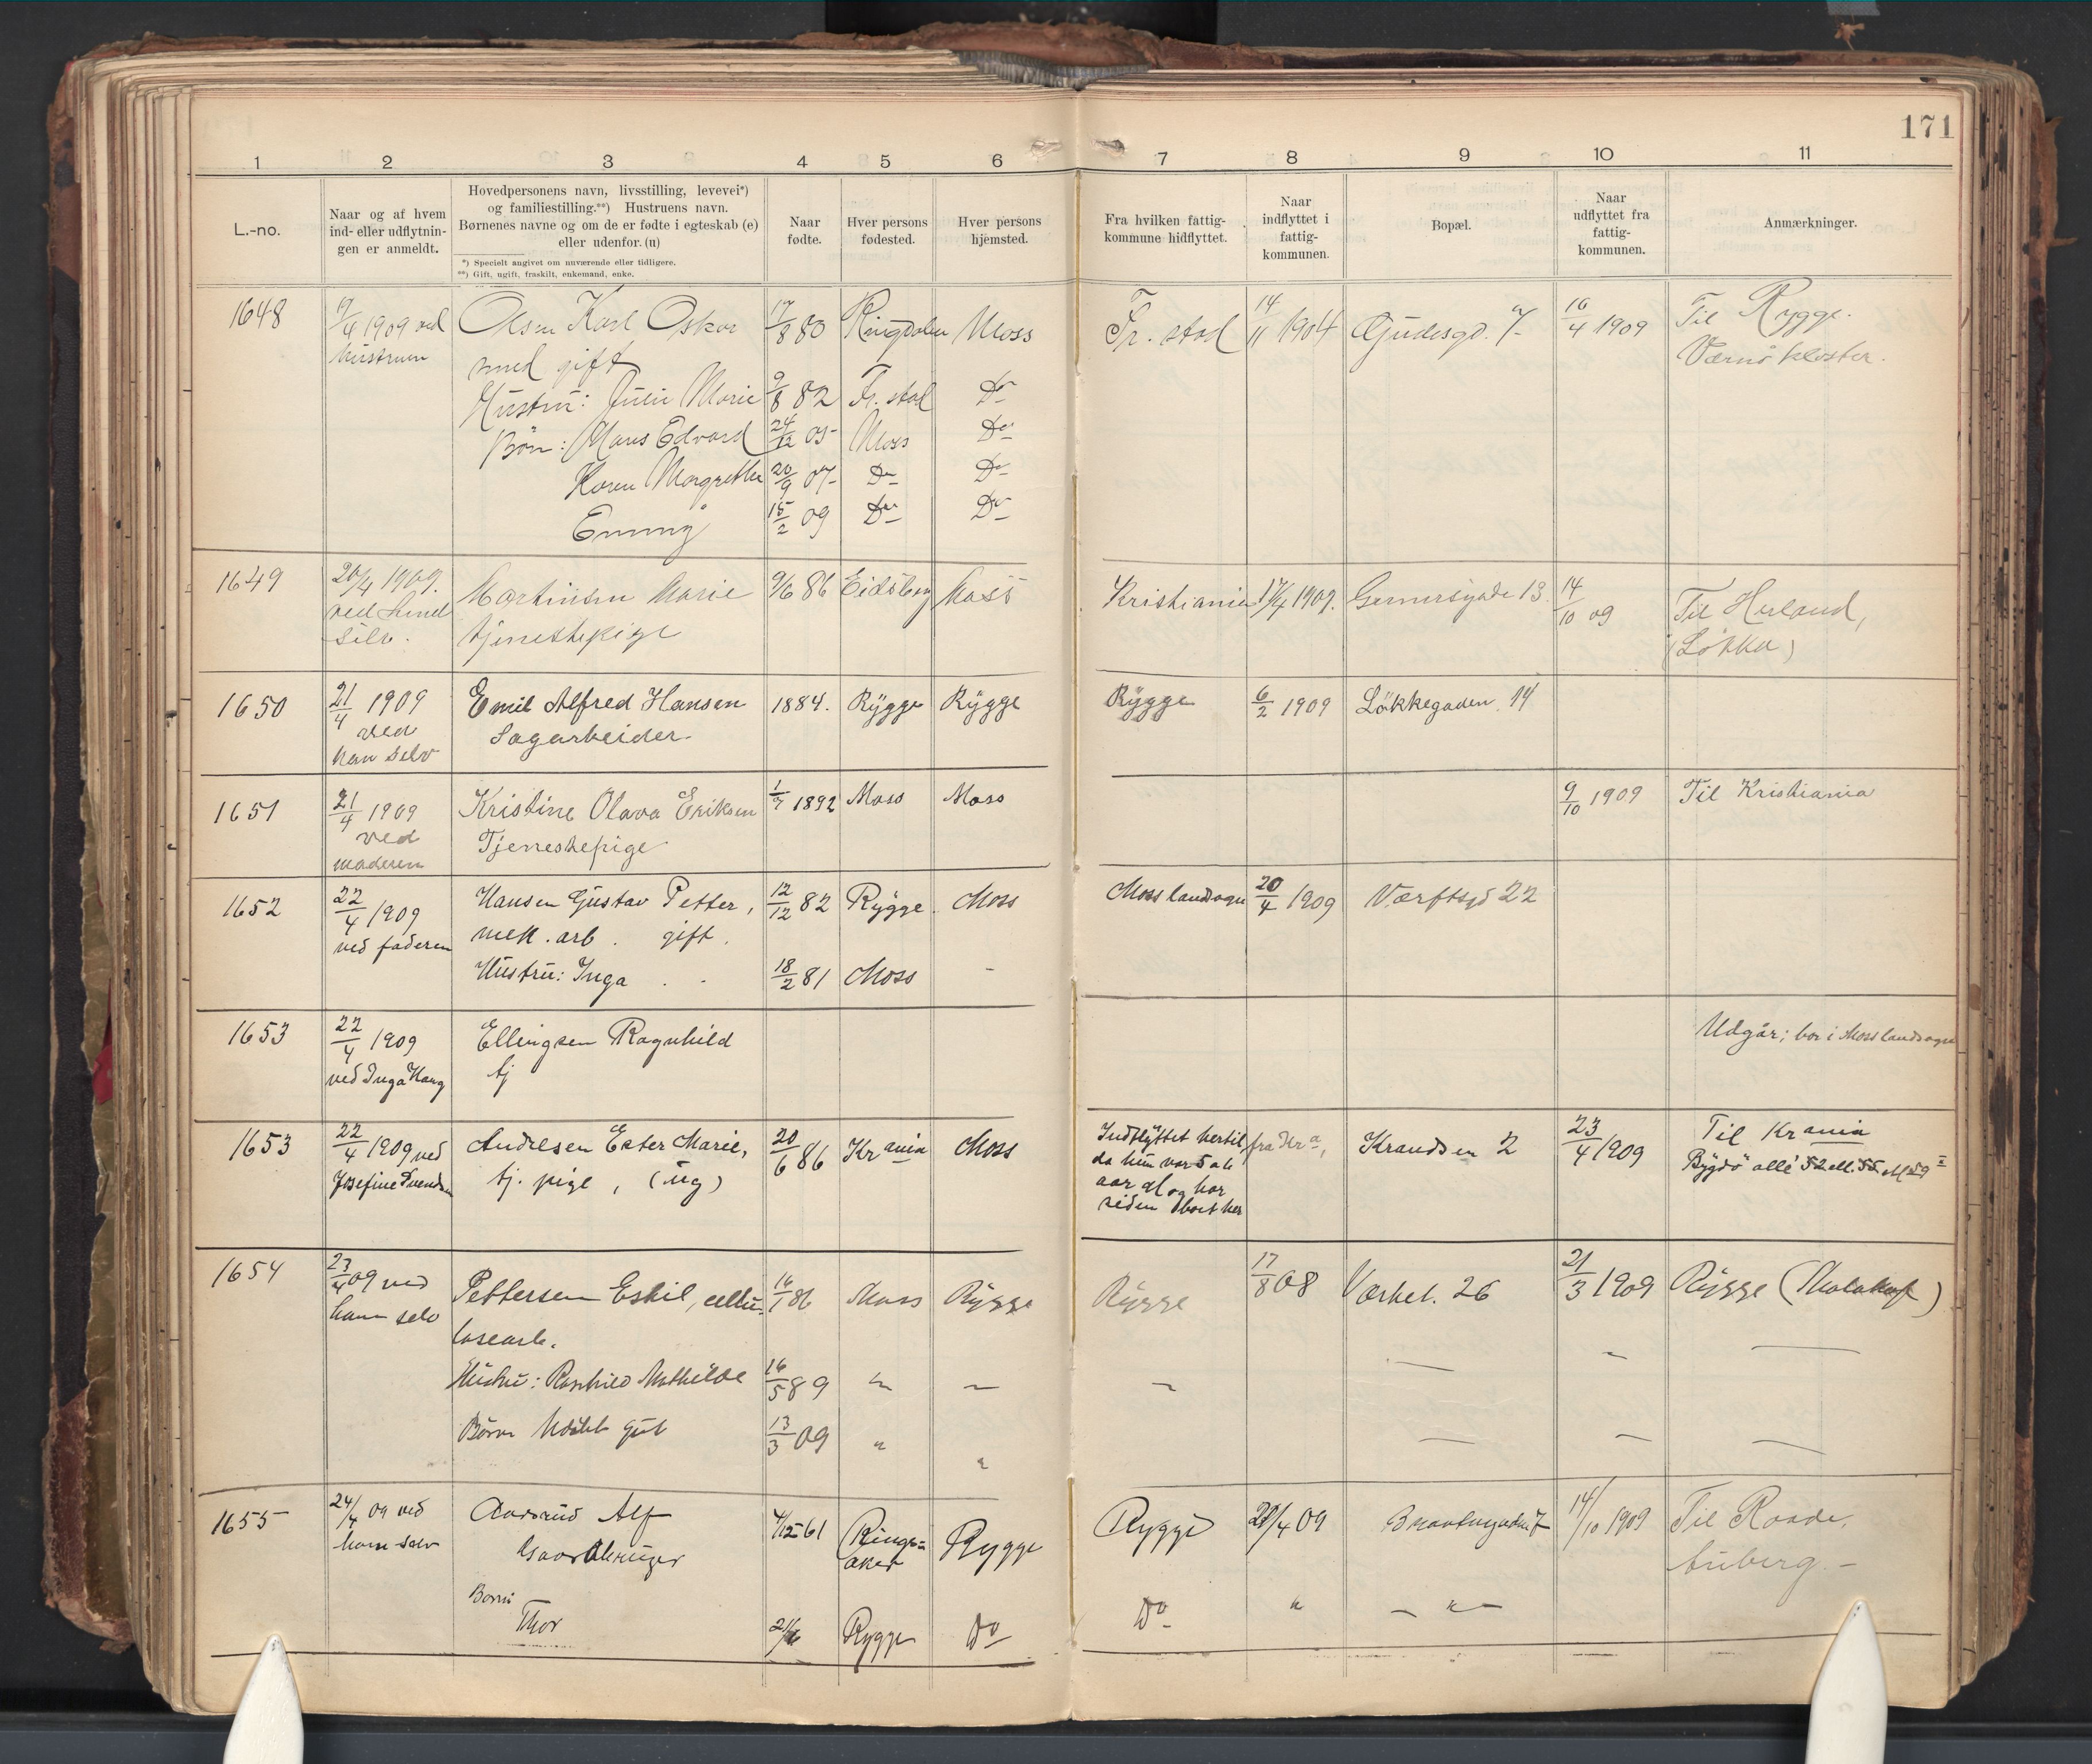 171
1 2 3 4 5 6 7 8 9 10 11
L.-no.
Naar og af hvem
ind- eller udflytnin-
gen er anmeldt.
Hovedpersonens navn, livsstilling, levevei*)
og familiestilling.**) Hustruens navn.
Børnenes navne og om de er fødte i egteskab (e)
eller udenfor. (u)
*) Specielt angivet om nuværende eller tidligere.
**) Gift, ugift, fraskilt, enkemand, enke.
Naar
fødte.
Hver persons
fødested.
Hver persons
hjemsted.
Fra hvilken fattig-
kommune hidflyttet.
Naar
indflyttet i
fattig-
kommunen.
Bopæl.
Naar
udflyttet fra
fattig-
kommunen.
Anmærkninger.
1648 17/4 1909 ved Olsen Karl Oskar 17/8 80 Ringdalen Moss Fr. stad 14/11 1904 Gudesgd. 7 16/4 1909 Til Rygge.
hustruen gift Værnø kloster.
Hustru: Julie Marie 9/8 82 Fr. stad Do
Børn: Hans Edvard 24/12 05 Moss Do
Karen Margrethe 20/9 07 Do Do
Emmy 15/2 09 Do Do
1649 20/4 1909. Martinsen Marie 9/6 86 Eidsberg Moss Kristiania 17/4 1909. Gernersgade 13. 14/10 09 Til Herland,
ved hende tjenestepige (Løkka)
selv.
1650 21/4 1909 Emil Alfred Hansen 1884. Rygge Rygge Rygge 6/2 1909 Løkkegaden 14
ved Sagarbeider
han selv
1651 21/4 1909 Kristine Olava Eriksen 1/7 1892 Moss Moss 9/10 1909 Til Kristiania
ved Tjenestepige
moderen
1652 22/4 1909 Hansen Gustav Petter, 12/12 82 Rygge. Moss Moss landsogn 20/4 1909 Værftsgd 22
ved faderen mek. arb. gift.
Hustru: Inga 18/2 81 Moss -
1653 22/4 1909 Ellingsen Ragnhild Udgår; bor i Moss landsogn
ved Inga Haug tj
1653 22/4 1909 ved Andresen Ester Marie, 20/6 86 Krania Moss Indflyttet hertil fra Kra, Krandsen 2 23/4 1909 Til Krania
Josefine Svendsen tj. pige, (ug) da hun var 5 à 6 Bygdø allé 52 ell. 55
aar gl og har
siden boet her
1654 23/4 09 ved Pettersen Eskil, cellu- 16/1 86 Moss Rygge Rygge 17/8 08 Værket. 26 21/3 1909 Rygge (Malakoff)
ham selv losearb.
Hustru: Mathilde 16/5 89 " — — — — —
Børn Udøbt gut 13/3 09 " " — — —
1655 24/4 09 ved Alf 4/12 61 Rings- Rygge Rygge 22/4 09 14/10 1909 Til Raade,
ham selv Gaardbruger aker
Børn
Thor 21/6 Rygge Do Do " — " —